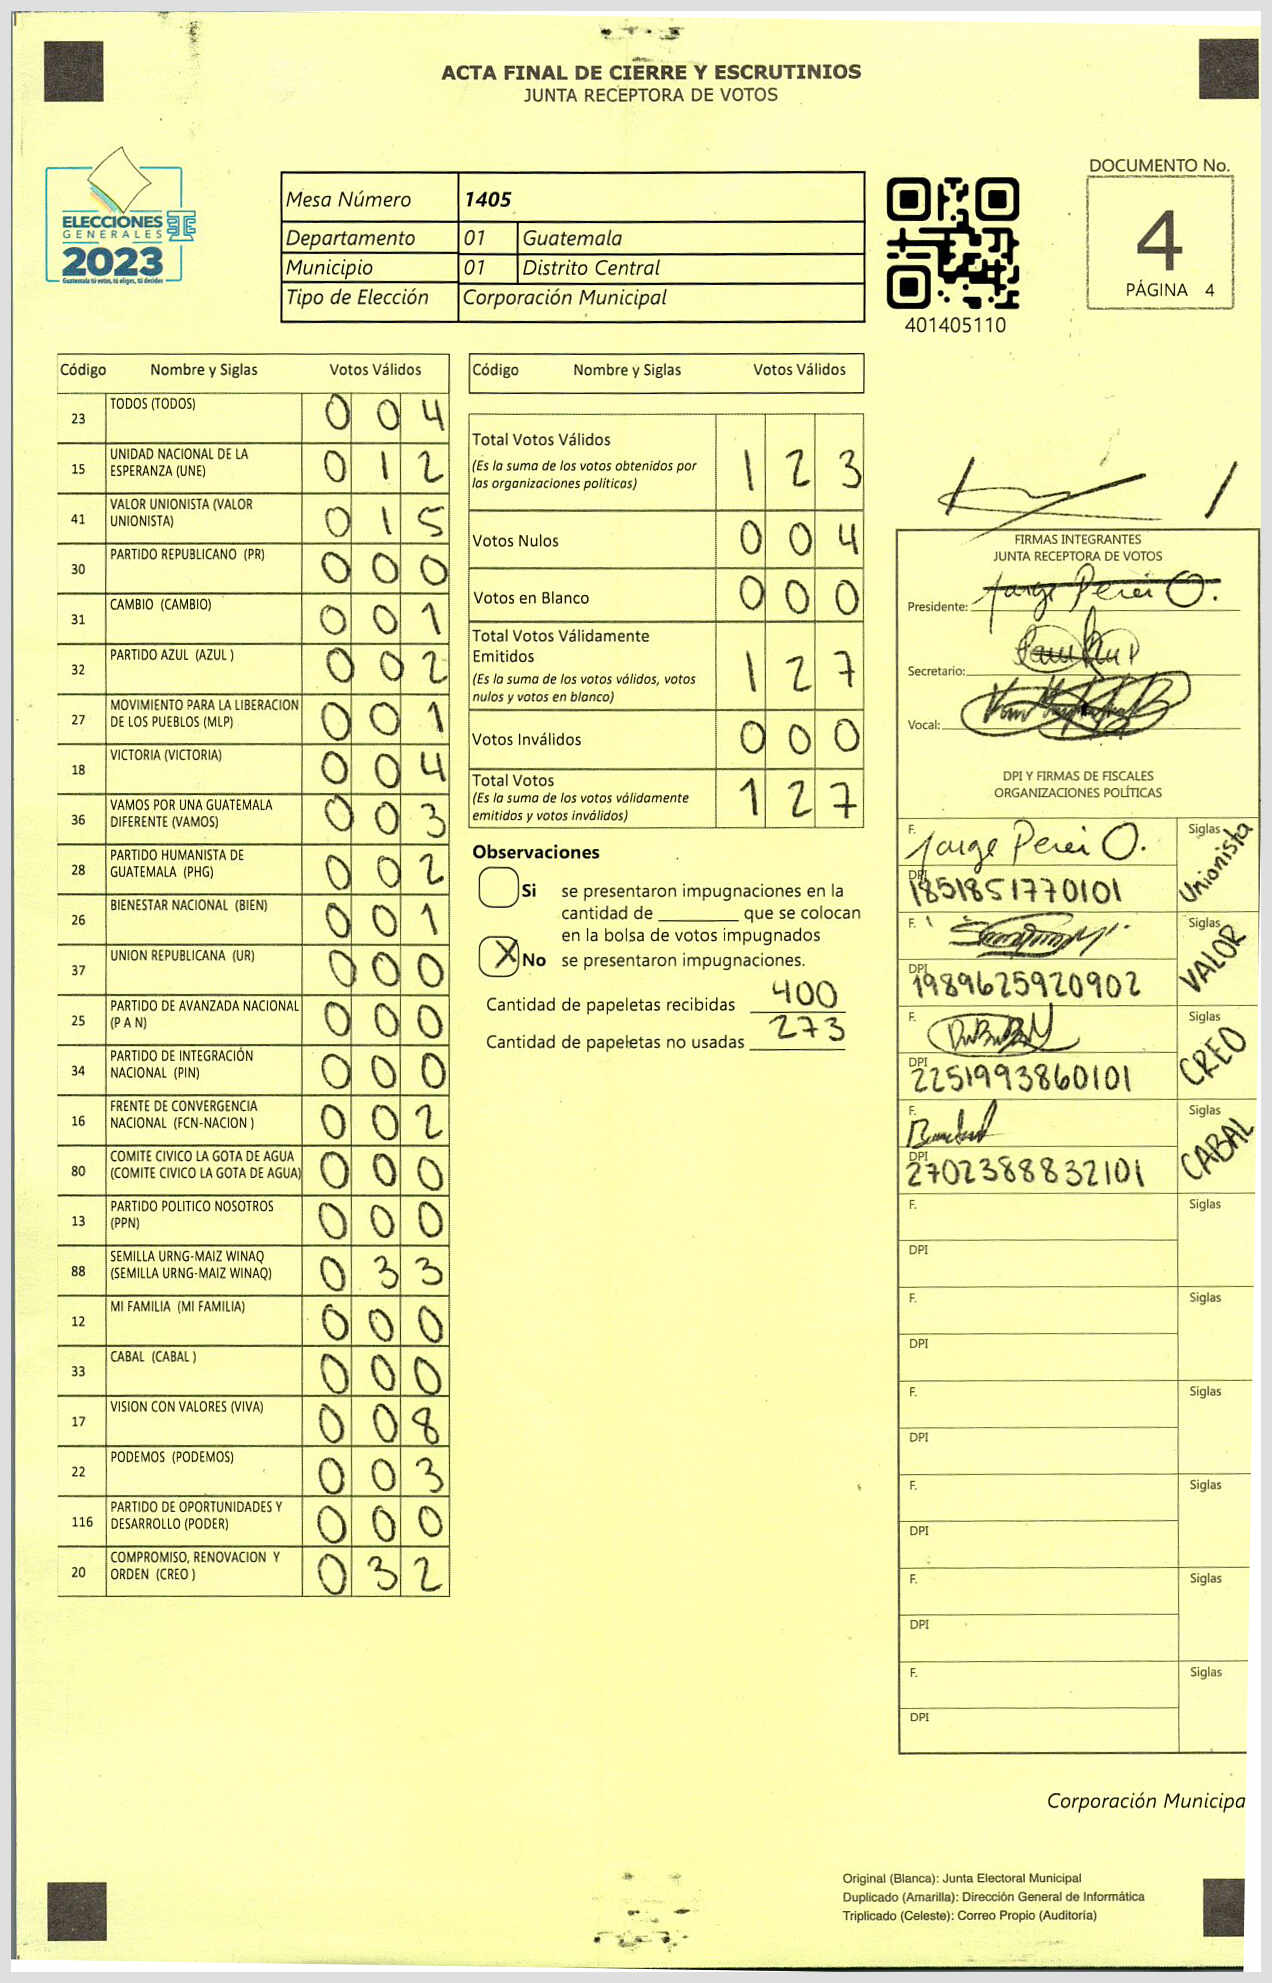 ACTA FINAL DE CIERRE Y ESCRUTINIOS
JUNTA RECEPTORA DE VOTOS
ELECCIONES
GENERALES
2023
Guatemala tú votas, tú eliges, tú decides
Mesa Número 1405
Departamento 01 Guatemala
Municipio 01 Distrito Central
Tipo de Elección Corporación Municipal
401405110
DOCUMENTO No.
4
PÁGINA 4
Código Nombre y Siglas Votos Válidos
23 TODOS (TODOS) 0 0 4
15 UNIDAD NACIONAL DE LA ESPERANZA (UNE) 0 1 2
41 VALOR UNIONISTA (VALOR UNIONISTA) 0 1 5
30 PARTIDO REPUBLICANO (PR) 0 0 0
31 CAMBIO (CAMBIO) 0 0 1
32 PARTIDO AZUL (AZUL ) 0 0 2
27 MOVIMIENTO PARA LA LIBERACION DE LOS PUEBLOS (MLP) 0 0 1
18 VICTORIA (VICTORIA) 0 0 4
36 VAMOS POR UNA GUATEMALA DIFERENTE (VAMOS) 0 0 3
28 PARTIDO HUMANISTA DE GUATEMALA (PHG) 0 0 2
26 BIENESTAR NACIONAL (BIEN) 0 0 1
37 UNION REPUBLICANA (UR) 0 0 0
25 PARTIDO DE AVANZADA NACIONAL (P A N) 0 0 0
34 PARTIDO DE INTEGRACIÓN NACIONAL (PIN) 0 0 0
16 FRENTE DE CONVERGENCIA NACIONAL (FCN-NACION ) 0 0 2
80 COMITE CIVICO LA GOTA DE AGUA (COMITE CIVICO LA GOTA DE AGUA) 0 0 0
13 PARTIDO POLITICO NOSOTROS (PPN) 0 0 0
88 SEMILLA URNG-MAIZ WINAQ (SEMILLA URNG-MAIZ WINAQ) 0 3 3
12 MI FAMILIA (MI FAMILIA) 0 0 0
33 CABAL (CABAL ) 0 0 0
17 VISION CON VALORES (VIVA) 0 0 8
22 PODEMOS (PODEMOS) 0 0 3
116 PARTIDO DE OPORTUNIDADES Y DESARROLLO (PODER) 0 0 0
20 COMPROMISO, RENOVACION Y ORDEN (CREO ) 0 3 2
Código Nombre y Siglas Votos Válidos
Total Votos Válidos 1 2 3
(Es la suma de los votos obtenidos por
las organizaciones políticas)
Votos Nulos 0 0 4
Votos en Blanco 0 0 0
Total Votos Válidamente
Emitidos 1 2 7
(Es la suma de los votos válidos, votos
nulos y votos en blanco)
Votos Inválidos 0 0 0
Total Votos 1 2 7
(Es la suma de los votos válidamente
emitidos y votos inválidos)
Observaciones
Si se presentaron impugnaciones en la
cantidad de ________ que se colocan
en la bolsa de votos impugnados
X No se presentaron impugnaciones.
Cantidad de papeletas recibidas 400
Cantidad de papeletas no usadas 273
FIRMAS INTEGRANTES
JUNTA RECEPTORA DE VOTOS
Presidente: Jorge Perei O.
Secretario:
Vocal:
DPI Y FIRMAS DE FISCALES
ORGANIZACIONES POLÍTICAS
F. Jorge Perei O. Siglas Unionista
DPI 1851851770101
F. Siglas VALOR
DPI 1989625920902
F. Siglas CREO
DPI 2251993860101
F. Siglas CABAL
DPI 2702388832101
F. Siglas
DPI
F. Siglas
DPI
F. Siglas
DPI
F. Siglas
DPI
F. Siglas
DPI
F. Siglas
DPI
Corporación Municipa
Original (Blanca): Junta Electoral Municipal
Duplicado (Amarilla): Dirección General de Informática
Triplicado (Celeste): Correo Propio (Auditoría)